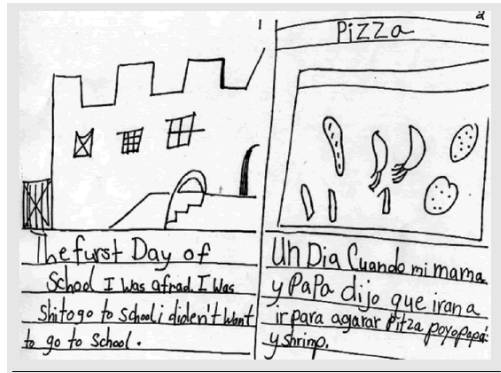 The furst Day of
School I was afrad. I was
Shi to go to School i diden't want
to go to School.
PizZa
Un Dia Cuando mi mama
y PaPa dijo que iran a
ir para agarar Pitza poyo papa
y shrimp.